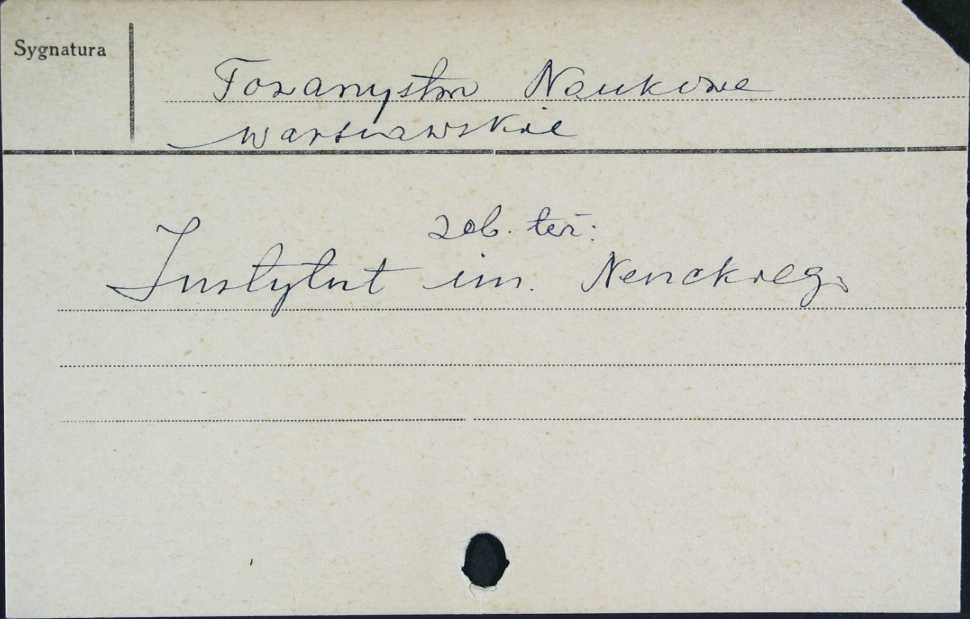 Sygnatura
Towarzystwo Naukowe
Warszawskie
zob. też:
Instytut im. Nenckiego